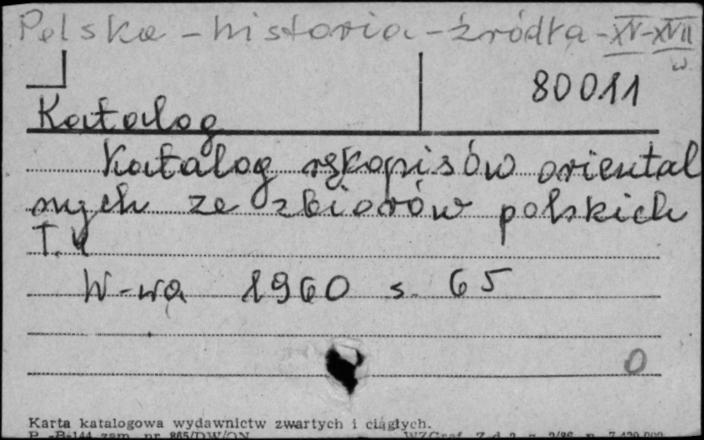 Polska - historia - źródła - XV-XVII
w
80011
Katalog
Katalog rękopisów oriental
nych ze zbiorów polskich
T. 4
W-wa 1960 s. 65
0
Karta katalogowa wydawnictw zwartych i ciągłych.
zam. nr. 865/DW/ON